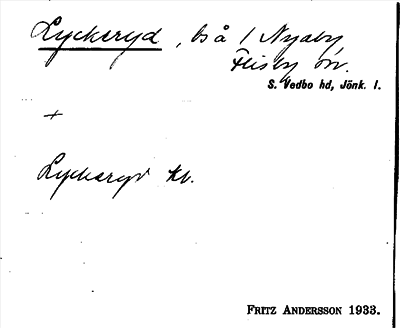 Lyckeryd, bs å 1 Nyaby
Flisby sn.
S. Vedbo hd, Jönk. l.
+
Lyckeryd
FRITZ ANDERSSON 1933.